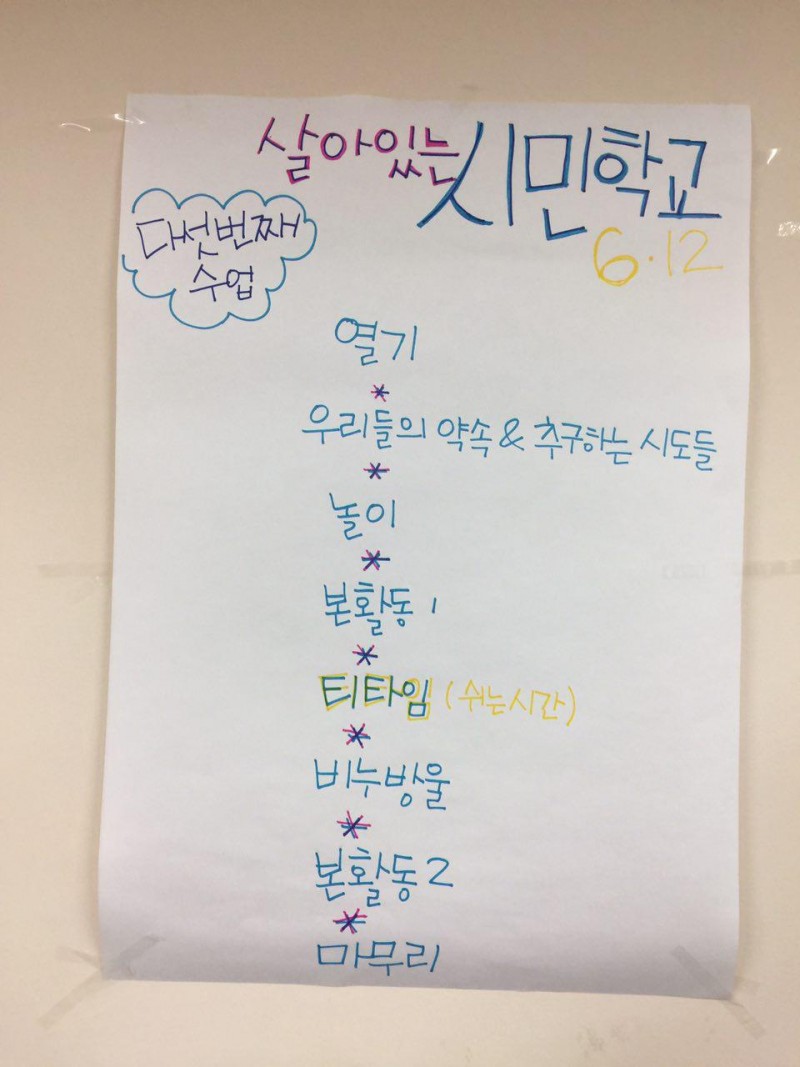 살아있는 시민학교
6.12
다섯번째
수업
열기
*
우리들의 약속 & 추구하는 시도들
*
놀이
*
본활동 1
*
티타임 (쉬는시간)
*
비누방울
*
본활동 2
*
마무리